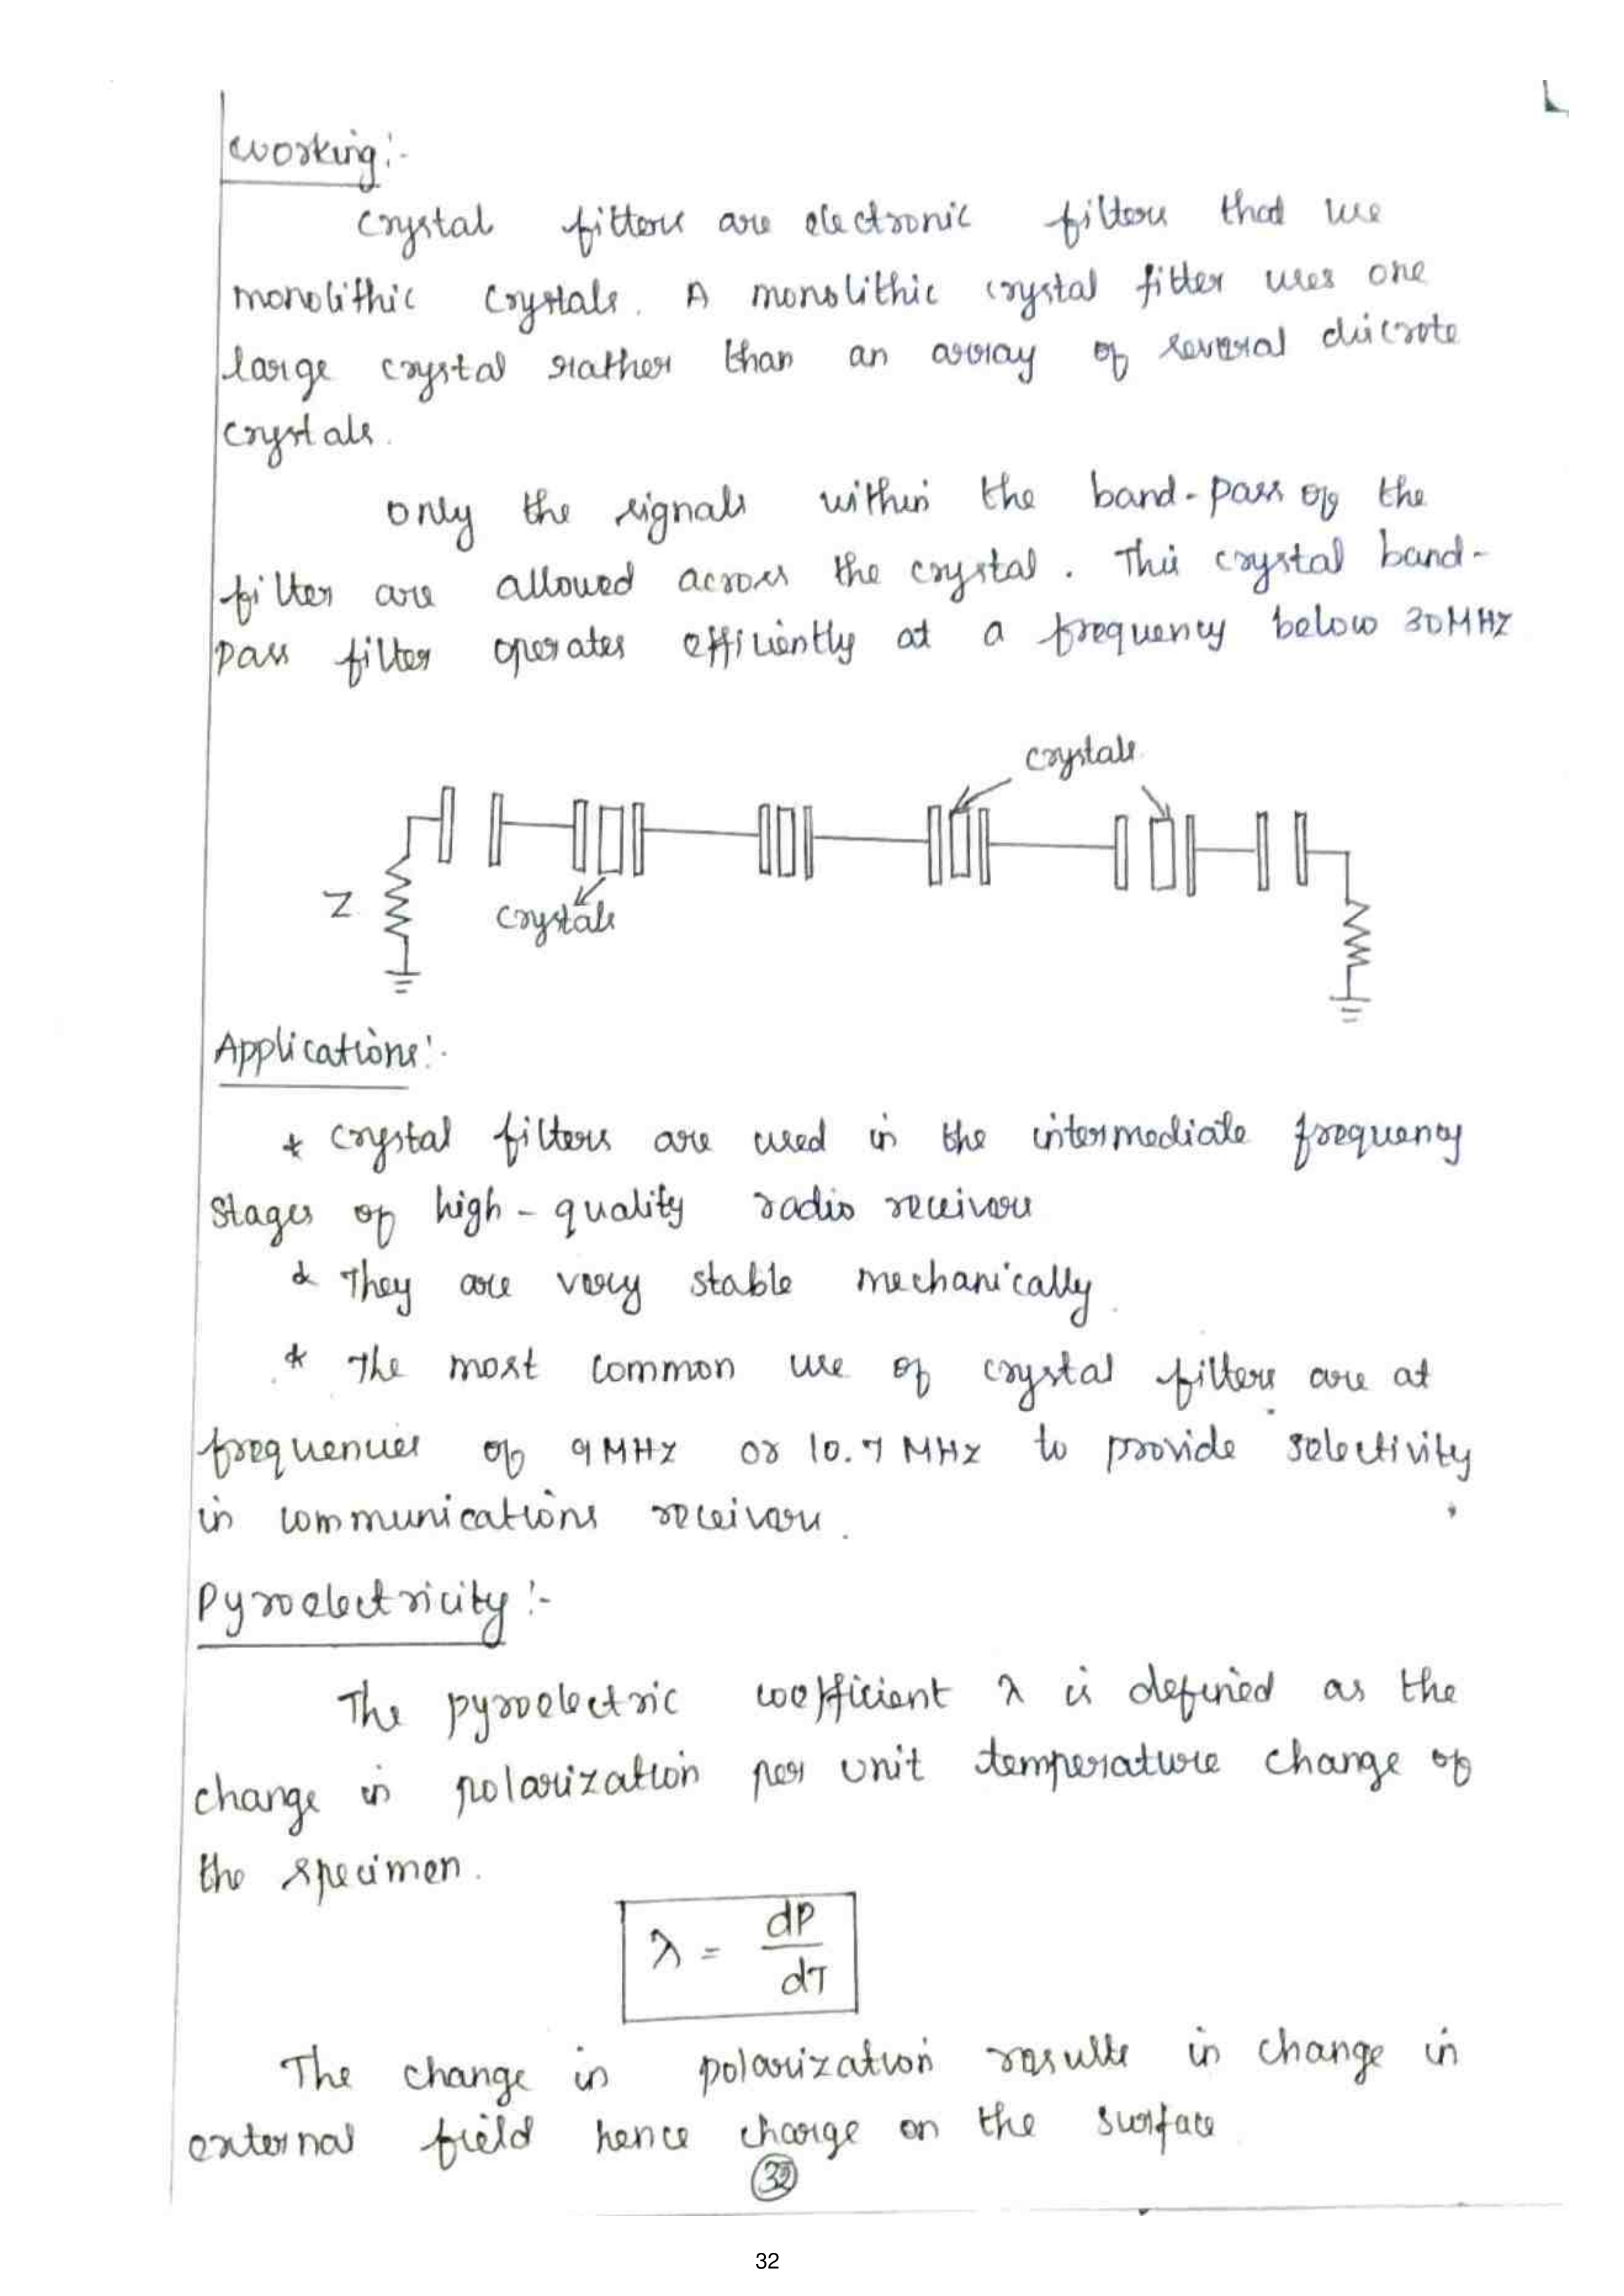 Working:-
Crystal filters are electronic filters that use
monolithic crystals. A monolithic crystal filter uses one
large crystal rather than an array of several discrete
crystals.
Only the signals within the band-pass of the
filter are allowed across the crystal. This crystal band-
pass filter operates efficiently at a frequency below 30MHZ
crystals
Z
crystals
Applications:-
* Crystal filters are used in the intermediate frequency
stages of high-quality radio receivers
* They are very stable mechanically.
* The most common use of crystal filters are at
frequencies of 9MHz or 10.7 MHz to provide selectivity
in communications receivers.
Pyroelectricity:-
The pyroelectric coefficient λ is defined as the
change in polarization per unit temperature change of
the specimen.
λ = dP/dT
The change in polarization results in change in
external field hence charge on the surface
32
32